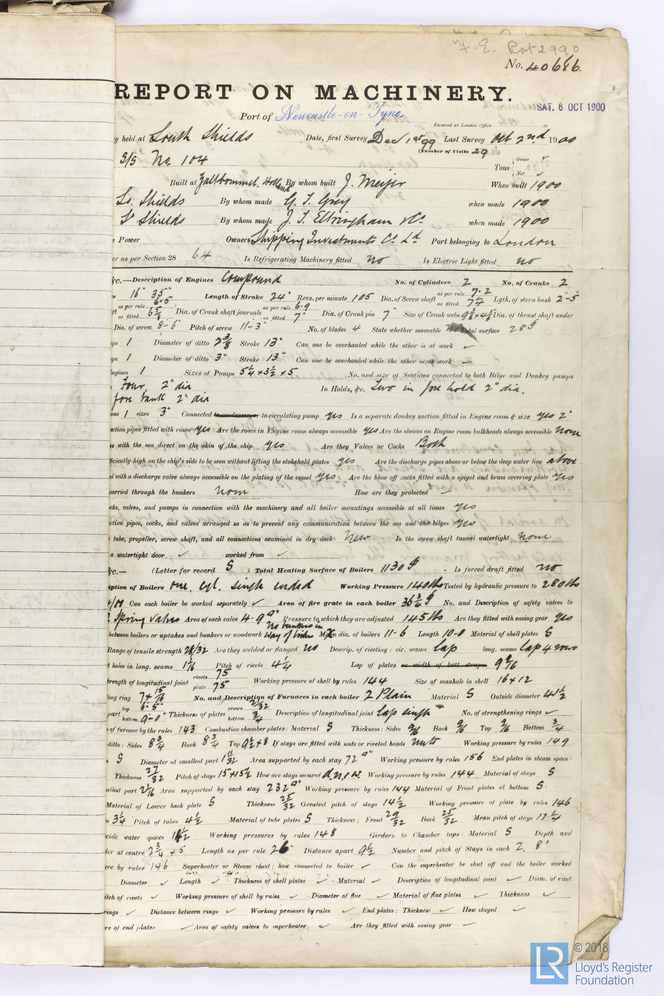 F. E. Rpt 2990
No. 40686.
REPORT ON MACHINERY.
SAT. 6 OCT 1900
Port of Newcastle-on-Tyne
Received at London Office
held at South Shields Date, first Survey Dec 1st 99 Last Survey Oct 2nd 1900
(Number of Visits 29
S/S No 104 Tons Gross Net
Built at Zaltbommel, Holland By whom built J. Meijer When built 1900
So. Shields By whom made G. T. Grey when made 1900
So Shields By whom made J. T. Eltringham & Co. when made 1900
Power Owners Shipping Investments Co. Ld. Port belonging to London
as per Section 28 64 Is Refrigerating Machinery fitted no Is Electric Light fitted no
&c.—Description of Engines Compound No. of Cylinders 2 No. of Cranks 2
16" 35" Length of Stroke 24" Revs. per minute 105 Dia. of Screw shaft as per rule 7.2 as fitted Lgth. of stern bush 2-5
as per rule 6.5 as fitted Dia. of Crank shaft journals as per rule 6.9 as fitted 7" Dia. of Crank pin 7" Size of Crank webs Dia. of thrust shaft under
Dia. of screw 8-6 Pitch of screw 11-3" No. of blades 4 State whether moveable Total surface 28
1 Diameter of ditto 2 3/8 Stroke 13" Can one be overhauled while the other is at work
1 Diameter of ditto 3" Stroke 13" Can one be overhauled while the other is at work
Engines 1 Sizes of Pumps 5 1/4 x 3 1/2 x 5 No. and size of Suctions connected to both Bilge and Donkey pumps
Four, 2" dia In Holds, &c. Two in fore hold 2" dia.
fore tank 2" dia
1 sizes 3" Connected to circulating pump yes Is a separate donkey suction fitted in Engine room & size yes 2"
suction pipes fitted with roses yes Are the roses in Engine room always accessible yes Are the sluices on Engine room bulkheads always accessible none
with the sea direct on the skin of the ship yes Are they Valves or Cocks Both
sufficiently high on the ship's side to be seen without lifting the stokehold plates yes Are the discharge pipes above or below the deep water line above
with a discharge valve always accessible on the plating of the vessel yes Are the blow off cocks fitted with a spigot and brass covering plate yes
carried through the bunkers none How are they protected
cocks, valves, and pumps in connection with the machinery and all boiler mountings accessible at all times yes
suction pipes, cocks, and valves arranged so as to prevent any communication between the sea and the bilges yes
tube, propeller, screw shaft, and all connections examined in dry dock New Is the screw shaft tunnel watertight none
a watertight door worked from
&c.— (Letter for record S) Total Heating Surface of Boilers 1130 Is forced draft fitted no
Description of Boilers one, cyl. single ended Working Pressure 140 lbs Tested by hydraulic pressure to 280 lbs
Can each boiler be worked separately Area of fire grate in each boiler No. and Description of safety valves to
2 Spring valves Area of each valve 4.9" Pressure to which they are adjusted 145 lbs Are they fitted with easing gear yes
between boilers or uptakes and bunkers or woodwork no bunkers in way of boiler dia. of boilers 11-6 Length 10-0 Material of shell plates S
Range of tensile strength 28/32 Are they welded or flanged no Descrip. of riveting: cir. seams lap long. seams lap 4 rows
holes in long. seams 1 1/16 Pitch of rivets 4 1/4 Lap of plates or width of butt straps 9 9/16
strength of longitudinal joint rivets 75 plate 75 Working pressure of shell by rules 144 Size of manhole in shell 16 x 12
ring 7 x 15/16 No. and Description of Furnaces in each boiler 2 Plain Material S Outside diameter 41 1/2
part top 6-5" bottom 9-0" Thickness of plates crown bottom Description of longitudinal joint lap single No. of strengthening rings
of furnace by the rules 143 Combustion chamber plates: Material S Thickness: Sides 9/16 Back 9/16 Top 9/16 Bottom 3/4
ditto: Sides 8 3/4 Back 8 3/4 Top 9 1/2 x 8 If stays are fitted with nuts or riveted heads nuts Working pressure by rules 149
S Diameter at smallest part Area supported by each stay 72" Working pressure by rules 156 End plates in steam space:
Thickness 27/32 Pitch of stays 15 x 15 1/2 How are stays secured Working pressure by rules 144 Material of stays S
smallest part 2 1/16 Area supported by each stay 232" Working pressure by rules 144 Material of Front plates at bottom S
Material of Lower back plate S Thickness 25/32 Greatest pitch of stays 14 1/2 Working pressure of plate by rules 146
3 1/4 Pitch of tubes 4 1/2 Material of tube plates S Thickness: Front 29/32 Back 25/32 Mean pitch of stays
wide water spaces Working pressures by rules 148 Girders to Chamber tops: Material S Depth and
at centre Length as per rule 26" Distance apart 9 1/2 Number and pitch of Stays in each 2, 8"
by rules 146 Superheater or Steam chest; how connected to boiler Can the superheater be shut off and the boiler worked
Diameter Length Thickness of shell plates Material Description of longitudinal joint Diam. of rivet
pitch of rivets Working pressure of shell by rules Diameter of flue Material of flue plates Thickness
rings Distance between rings Working pressure by rules End plates: Thickness How stayed
of end plates Area of safety valves to superheater Are they fitted with easing gear
© 2018
LR
Lloyd's Register
Foundation